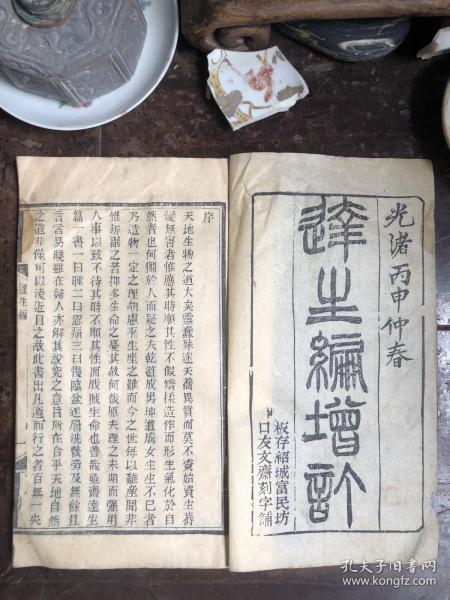 光緒丙申仲春
達生編增訂
板存紹城富民坊
口友文齋刻字鋪
序
天地生物之道大矣靈蠢殊途夭喬異質而莫不資始資生善
優無害者惟應其時順其性不假矯揉造作而形生氣化於自
然者也何獨於人而疑之夫乾道成男坤道成女生生不已者
乃造物一定之理胡慮乎生產之難而今之世每以難產聞非
惟胎前之苦抑多生命之憂其故何哉原夫理之未明而彊用
人事以致不待其時不順其性而戕賊生命也善哉亟齋達生
篇一書一曰睡二曰忍痛三曰慢臨盆
言言易曉雖在婦人亦解其說究之意旨所在合乎天地自然
之道非僅可以淺近目之故此書出凡遵而行之者百無一失
達生編
孔夫子旧书网
www.kongfz.com